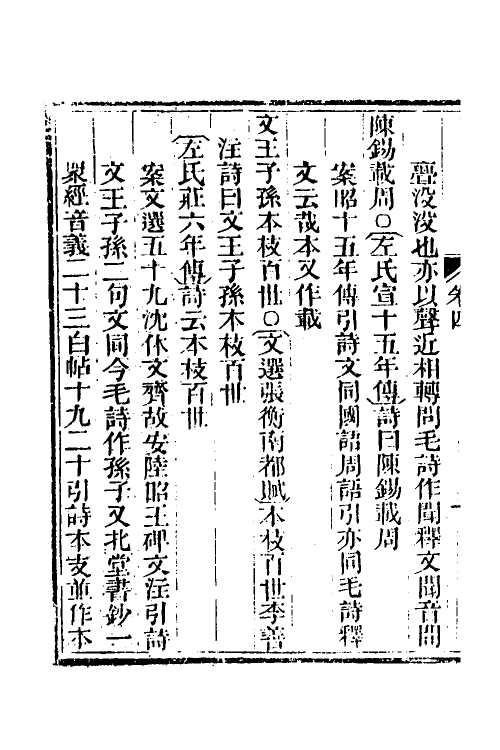 卷四
亹没没也亦以聲近相轉問毛詩作聞釋文聞音問
陳錫載周〇左氏宣十五年傳詩曰陳錫載周
案昭十五年傳引詩文同國語周語引亦同毛詩釋
文云哉本又作載
文王子孫本枝百世〇文選張衡南都賦本枝百世李善
注詩曰文王子孫本枝百世
左氏莊六年傳詩云本枝百世
案文選五十九沈休文齊故安陸昭王碑文注引詩
文王子孫二句文同今毛詩作孫子又北堂書鈔一
衆經音義二十三白帖十九二十引詩本支並作本